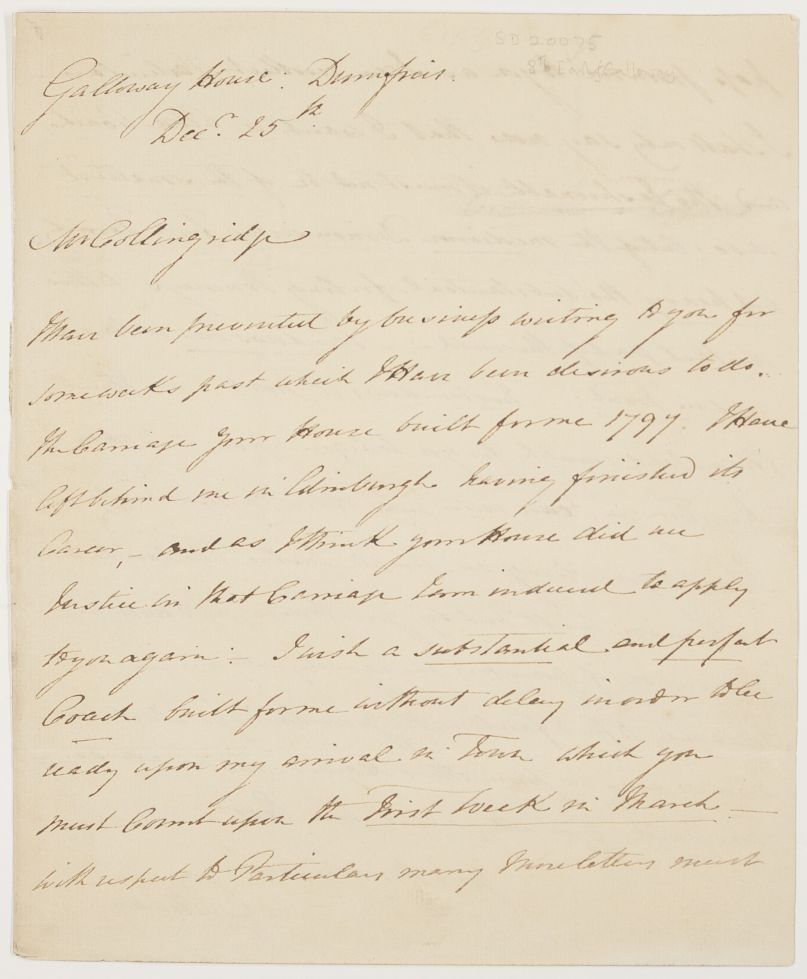 SD 20075
8th E. of Galloway
Galloway House: Dumfries.
Decr. 25th
Mr Collingridge
I Have been prevented by business writing to you for
some weeks past which I Have been desirous to do.
The Carriage Your House built for me 1797. I Have
left behind me in Edinburgh having finished its
Career, – and as I think your House did me
Justice in that Carriage I am induced to apply
to you again: – I wish a substantial and perfect
Coach built for me without delay in order to be
ready upon my arrival in Town which you
must Count upon the First Week in March –
with respect to Particulars many more letters must